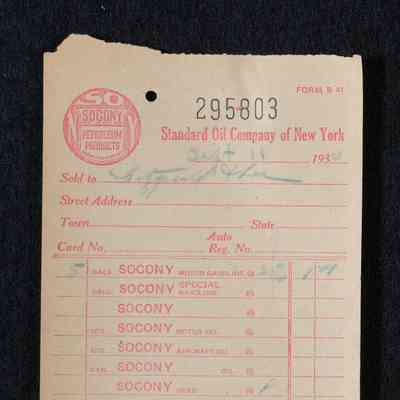 FORM B 41
SO
SOCONY
PETROLEUM
PRODUCTS
295803
Standard Oil Company of New York
Sept 11 193
Sold to
Street Address
Town State
Card No. Auto Reg. No.
5 GALS. SOCONY MOTOR GASOLINE, @
GALS. SOCONY SPECIAL GASOLINE @
SOCONY @
QTS. SOCONY MOTOR OIL @
QTS. SOCONY AIRCRAFT OIL @
SOCONY OIL @
SOCONY @